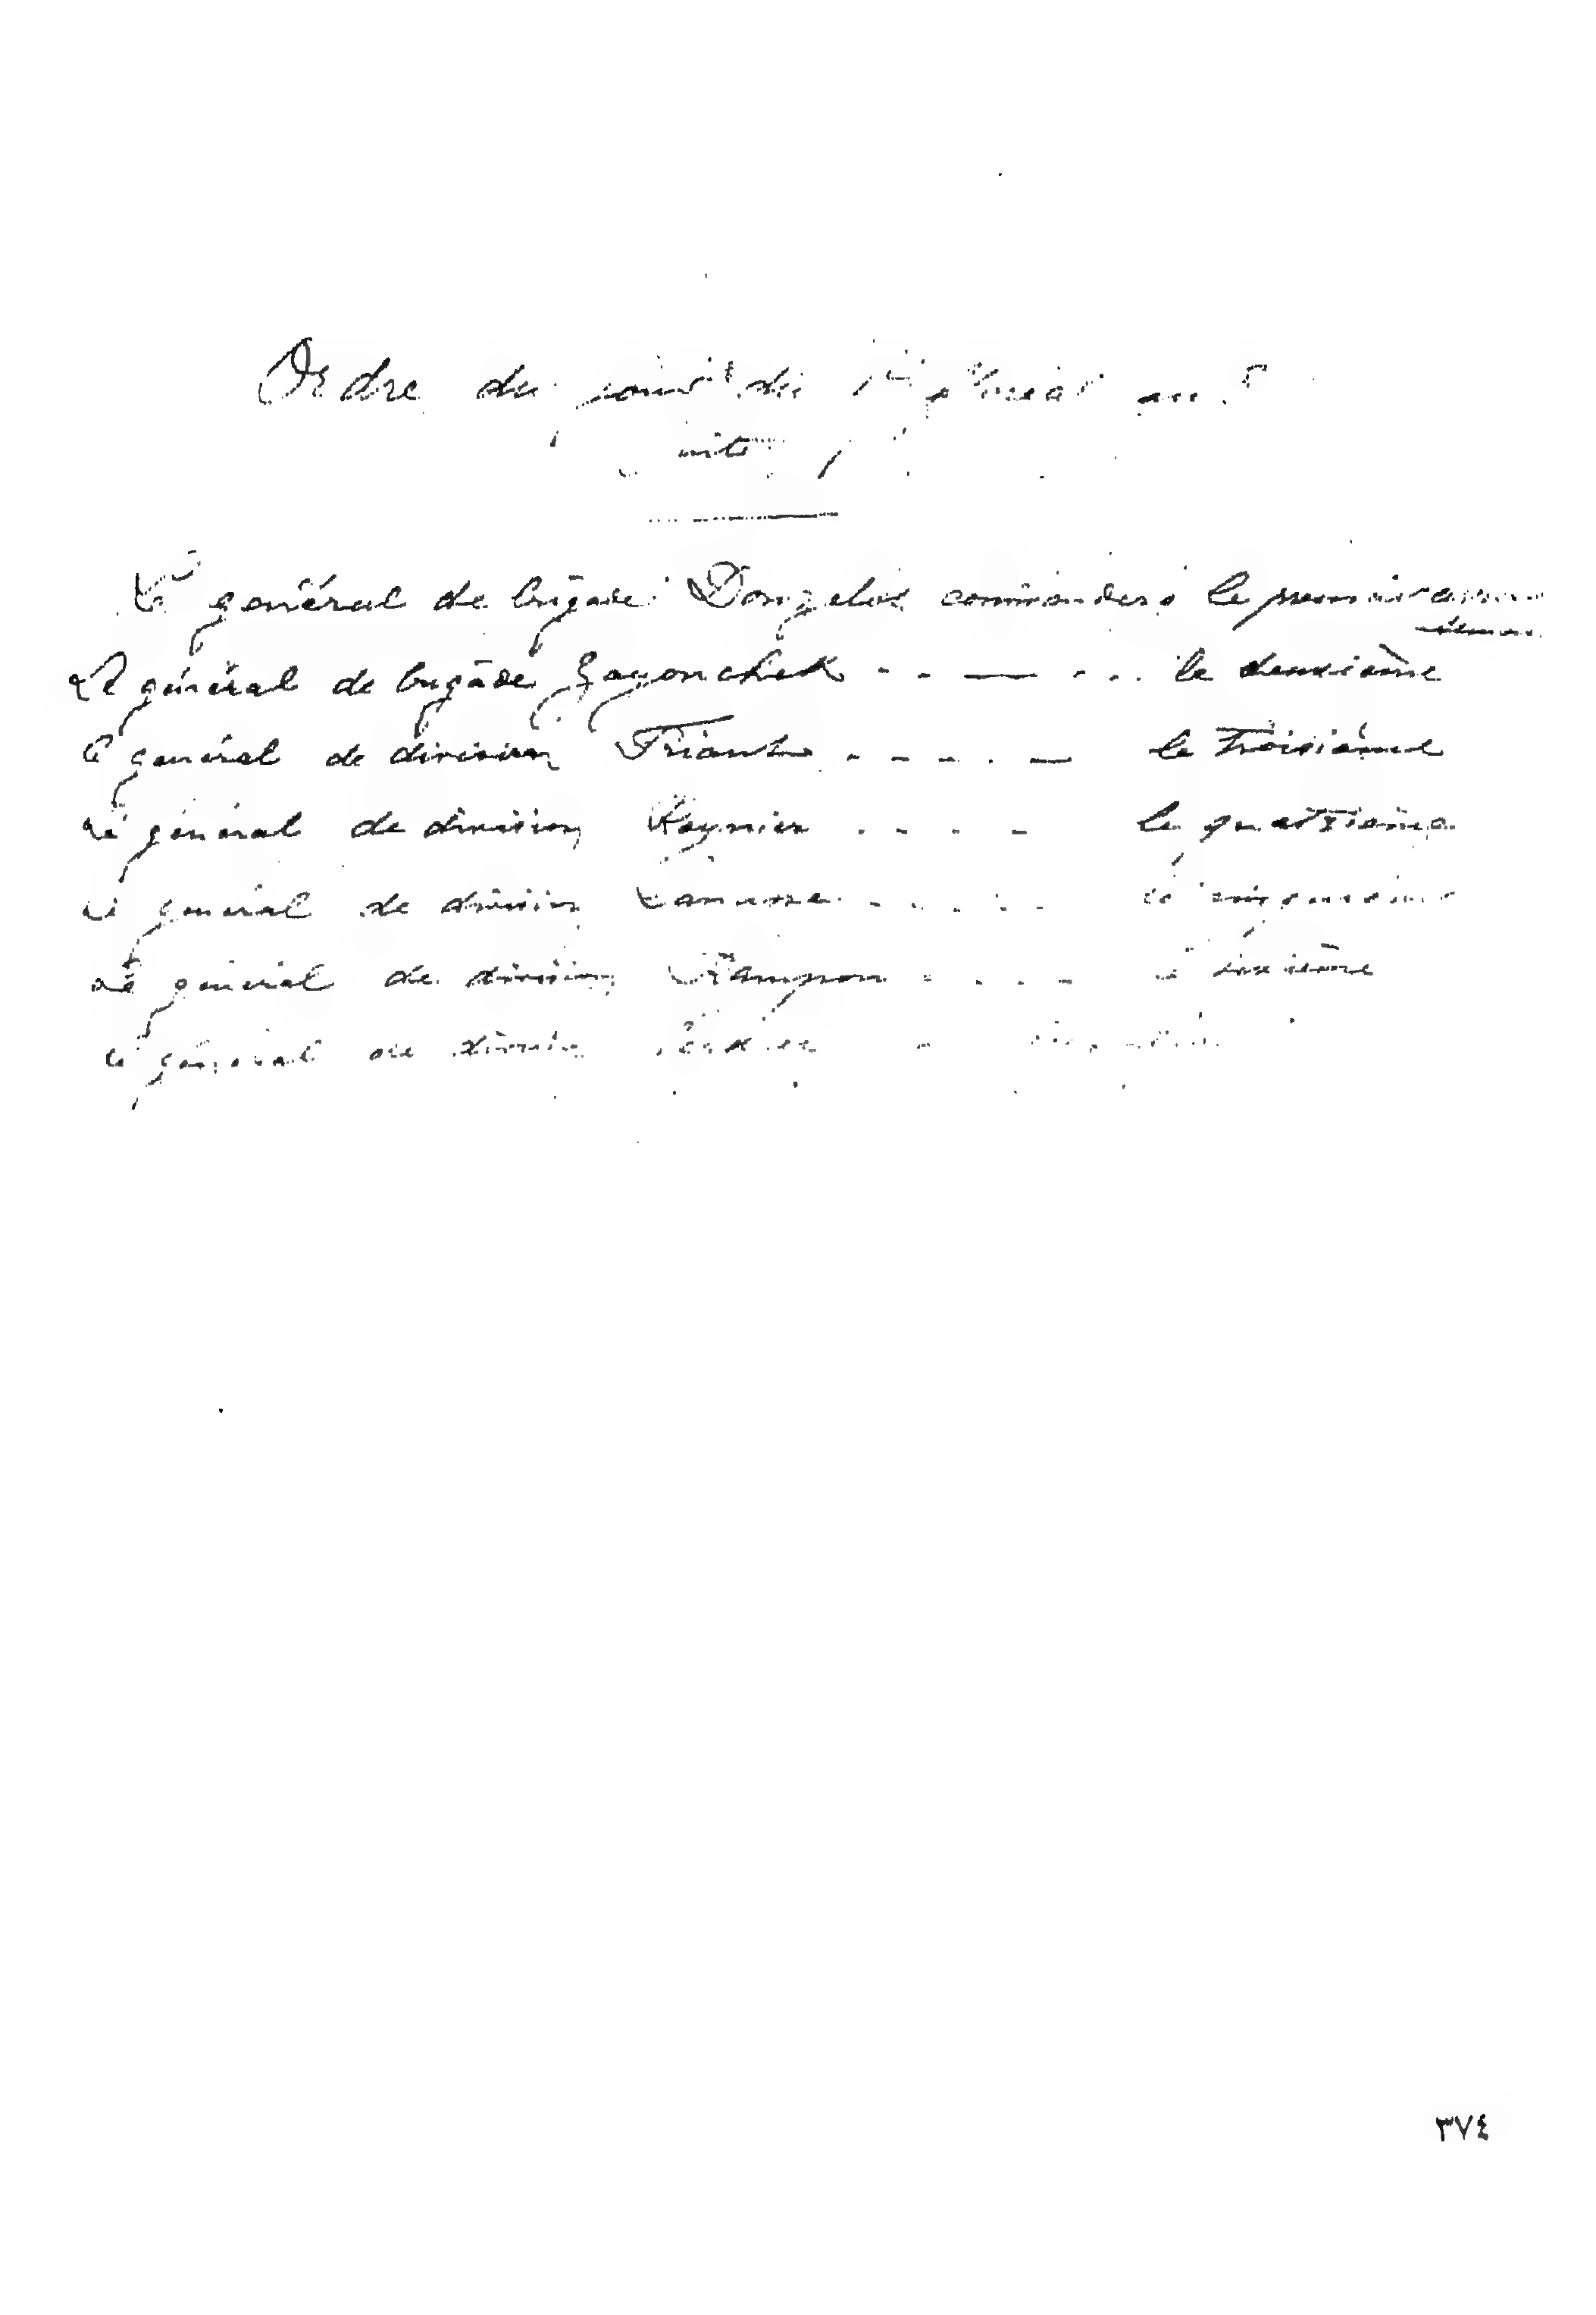 Ordre du jour du 1er floréal an
suite
Le général de brigade Donzelot commandera le premier
Le général de brigade Zayonchek - - — - - - le deuxième
Le général de division Friant - - - - - — le troisième
Le général de division Reynier - - - - le quatrième
Le général de division Lanusse - - - - - le cinquième
Le général de division Rampon - - - - le sixième
Le général de division
٣٧٤